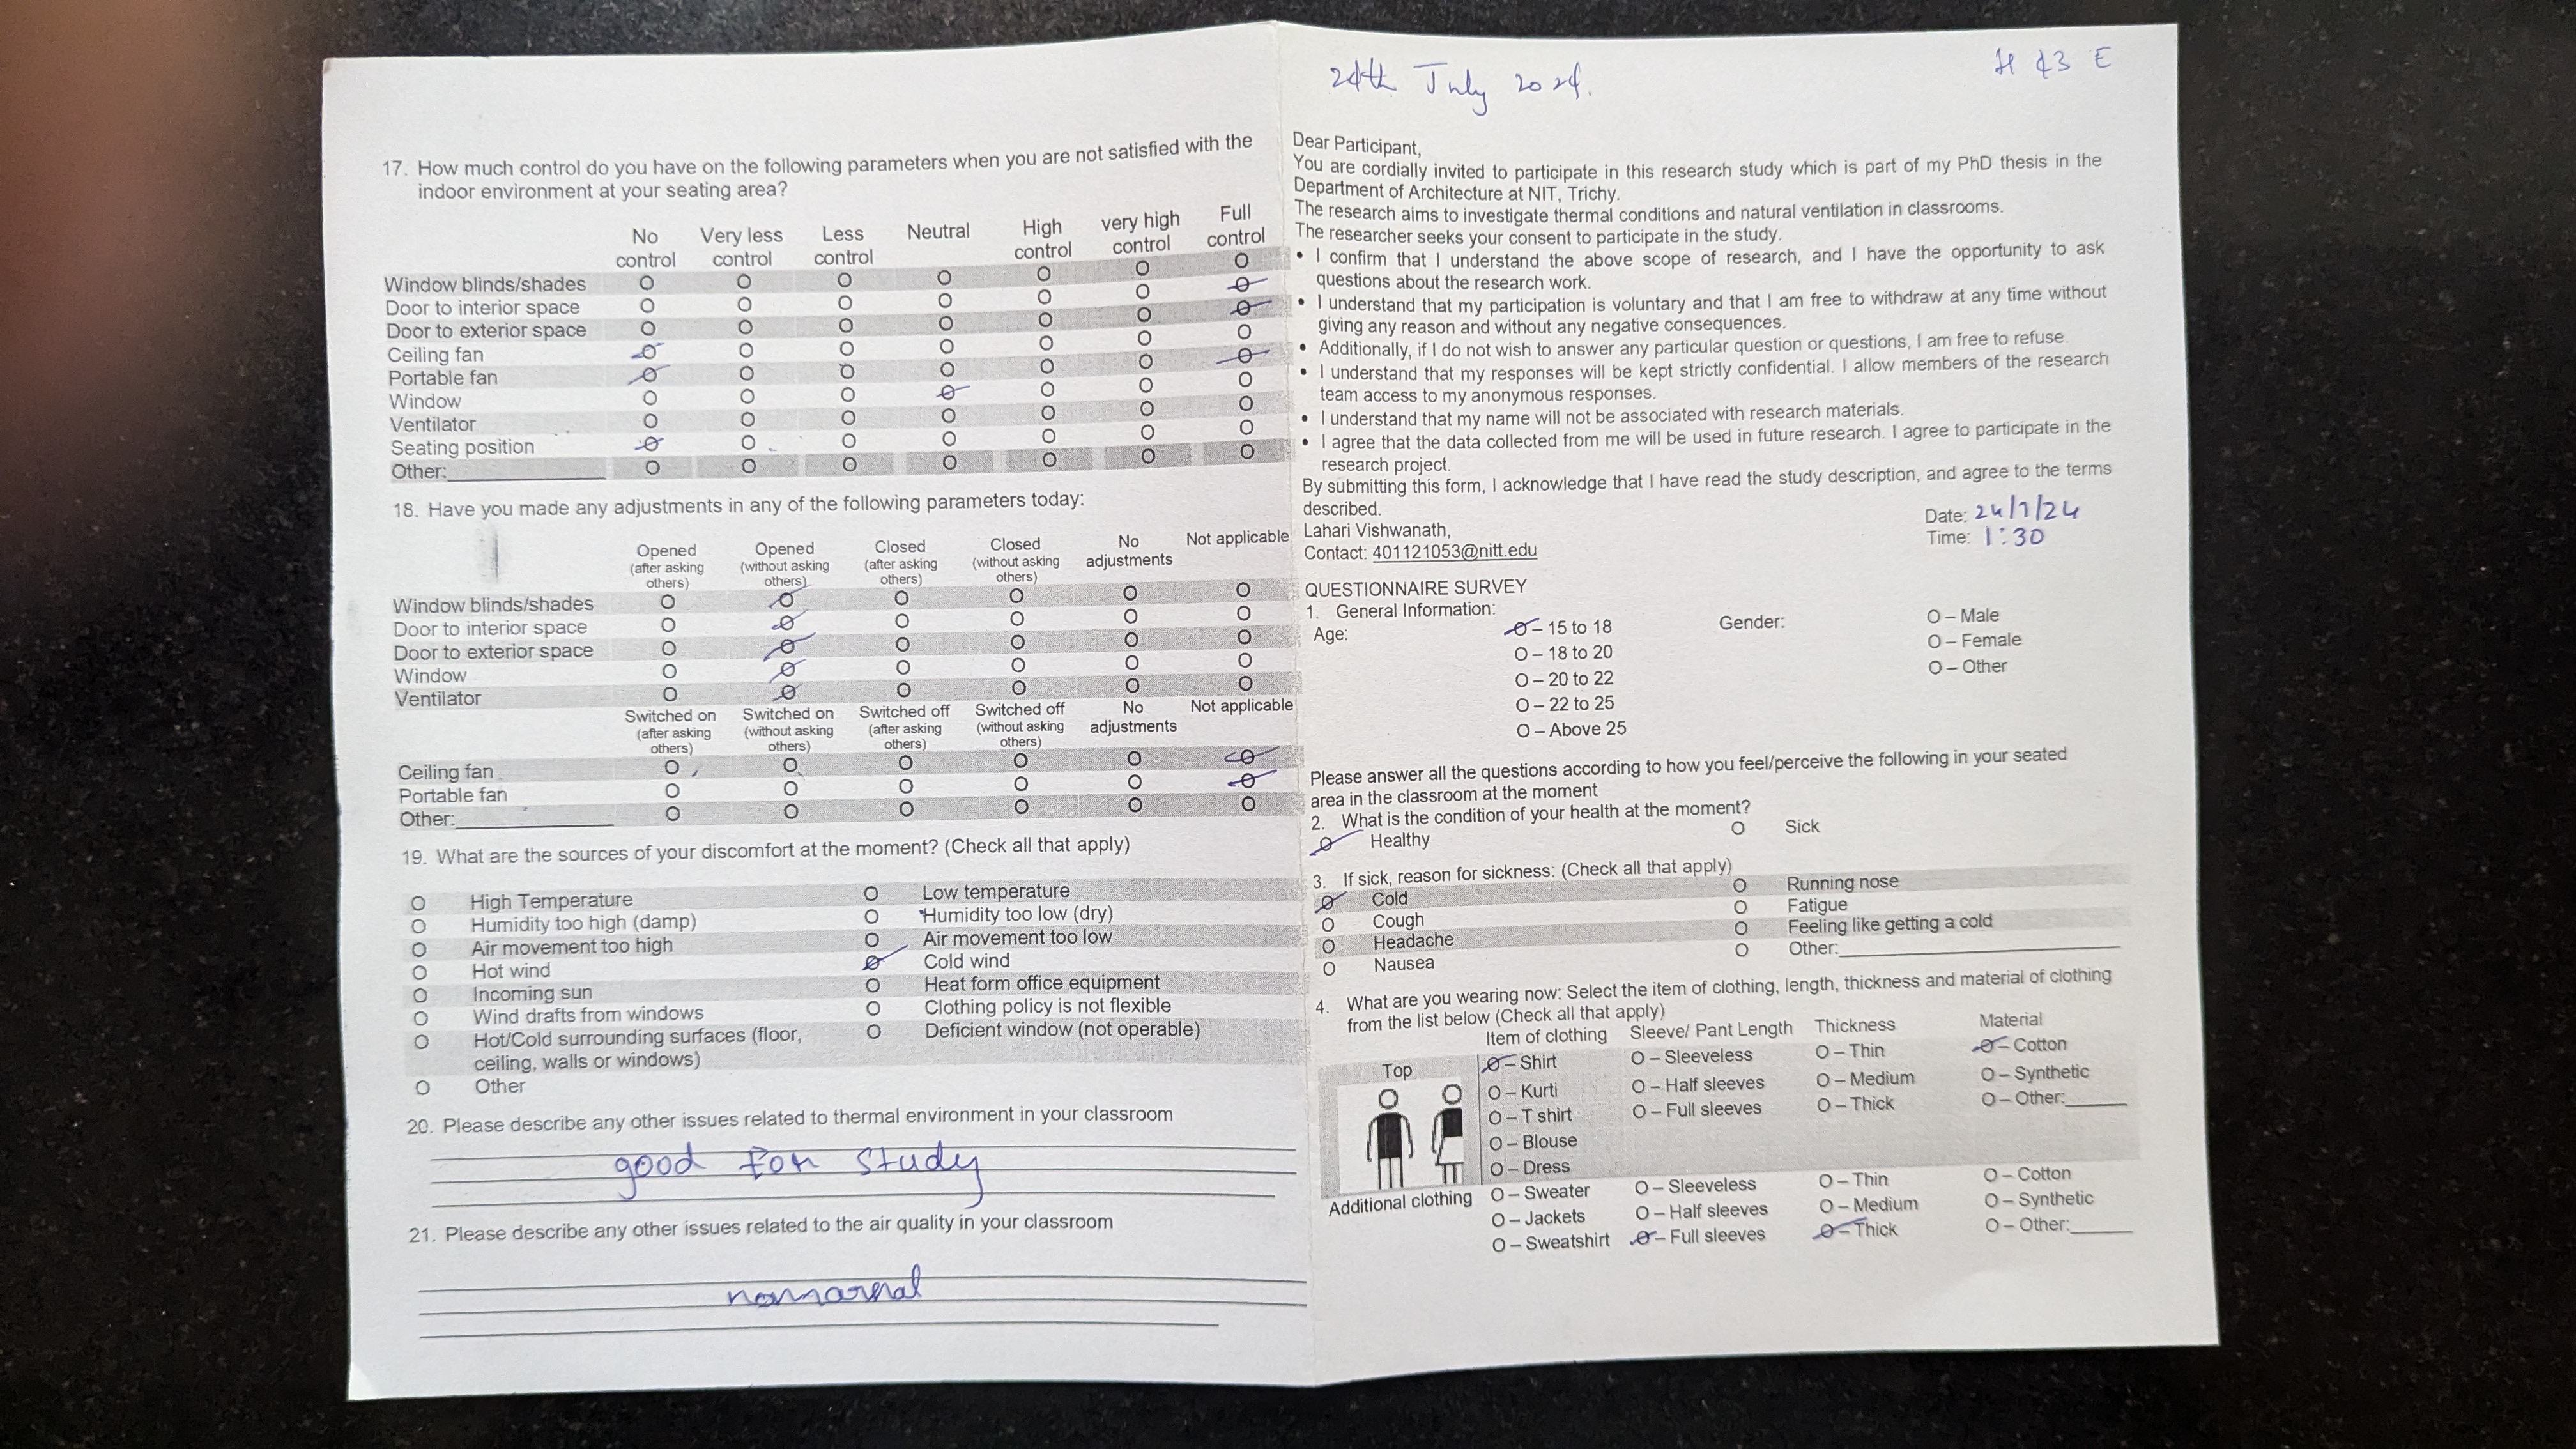 17. How much control do you have on the following parameters when you are not satisfied with the
indoor environment at your seating area?
No control Very less control Less control Neutral High control very high control Full control
Window blinds/shades O O O O O O O
Door to interior space O O O O O O O
Door to exterior space O O O O O O O
Ceiling fan O O O O O O O
Portable fan O O O O O O O
Window O O O O O O O
Ventilator O O O O O O O
Seating position O O O O O O O
Other: O O O O O O O
18. Have you made any adjustments in any of the following parameters today:
Opened (after asking others) Opened (without asking others) Closed (after asking others) Closed (without asking others) No adjustments Not applicable
Window blinds/shades O O O O O O
Door to interior space O O O O O O
Door to exterior space O O O O O O
Window O O O O O O
Ventilator O O O O O O
Switched on (after asking others) Switched on (without asking others) Switched off (after asking others) Switched off (without asking others) No adjustments Not applicable
Ceiling fan O O O O O O
Portable fan O O O O O O
Other: O O O O O O
19. What are the sources of your discomfort at the moment? (Check all that apply)
O High Temperature O Low temperature
O Humidity too high (damp) O Humidity too low (dry)
O Air movement too high O Air movement too low
O Hot wind O Cold wind
O Incoming sun O Heat form office equipment
O Wind drafts from windows O Clothing policy is not flexible
O Hot/Cold surrounding surfaces (floor, O Deficient window (not operable)
ceiling, walls or windows)
O Other
20. Please describe any other issues related to thermal environment in your classroom
good for study
21. Please describe any other issues related to the air quality in your classroom
24th July 2024.
E
Dear Participant,
You are cordially invited to participate in this research study which is part of my PhD thesis in the
Department of Architecture at NIT, Trichy.
The research aims to investigate thermal conditions and natural ventilation in classrooms.
The researcher seeks your consent to participate in the study.
• I confirm that I understand the above scope of research, and I have the opportunity to ask
questions about the research work.
• I understand that my participation is voluntary and that I am free to withdraw at any time without
giving any reason and without any negative consequences.
• Additionally, if I do not wish to answer any particular question or questions, I am free to refuse.
• I understand that my responses will be kept strictly confidential. I allow members of the research
team access to my anonymous responses.
• I understand that my name will not be associated with research materials.
• I agree that the data collected from me will be used in future research. I agree to participate in the
research project.
By submitting this form, I acknowledge that I have read the study description, and agree to the terms
described.
Lahari Vishwanath,
Contact: 401121053@nitt.edu
Date: 24/7/24
Time: 1:30
QUESTIONNAIRE SURVEY
1. General Information:
Age: O – 15 to 18 Gender: O – Male
O – 18 to 20 O – Female
O – 20 to 22 O – Other
O – 22 to 25
O – Above 25
Please answer all the questions according to how you feel/perceive the following in your seated
area in the classroom at the moment
2. What is the condition of your health at the moment?
O Healthy O Sick
3. If sick, reason for sickness: (Check all that apply)
O Cold O Running nose
O Cough O Fatigue
O Headache O Feeling like getting a cold
O Nausea O Other:
4. What are you wearing now: Select the item of clothing, length, thickness and material of clothing
from the list below (Check all that apply)
Item of clothing Sleeve/ Pant Length Thickness Material
Top O – Shirt O – Sleeveless O – Thin O – Cotton
O – Kurti O – Half sleeves O – Medium O – Synthetic
O – T shirt O – Full sleeves O – Thick O – Other:
O – Blouse
O – Dress
Additional clothing O – Sweater O – Sleeveless O – Thin O – Cotton
O – Jackets O – Half sleeves O – Medium O – Synthetic
O – Sweatshirt O – Full sleeves O – Thick O – Other: